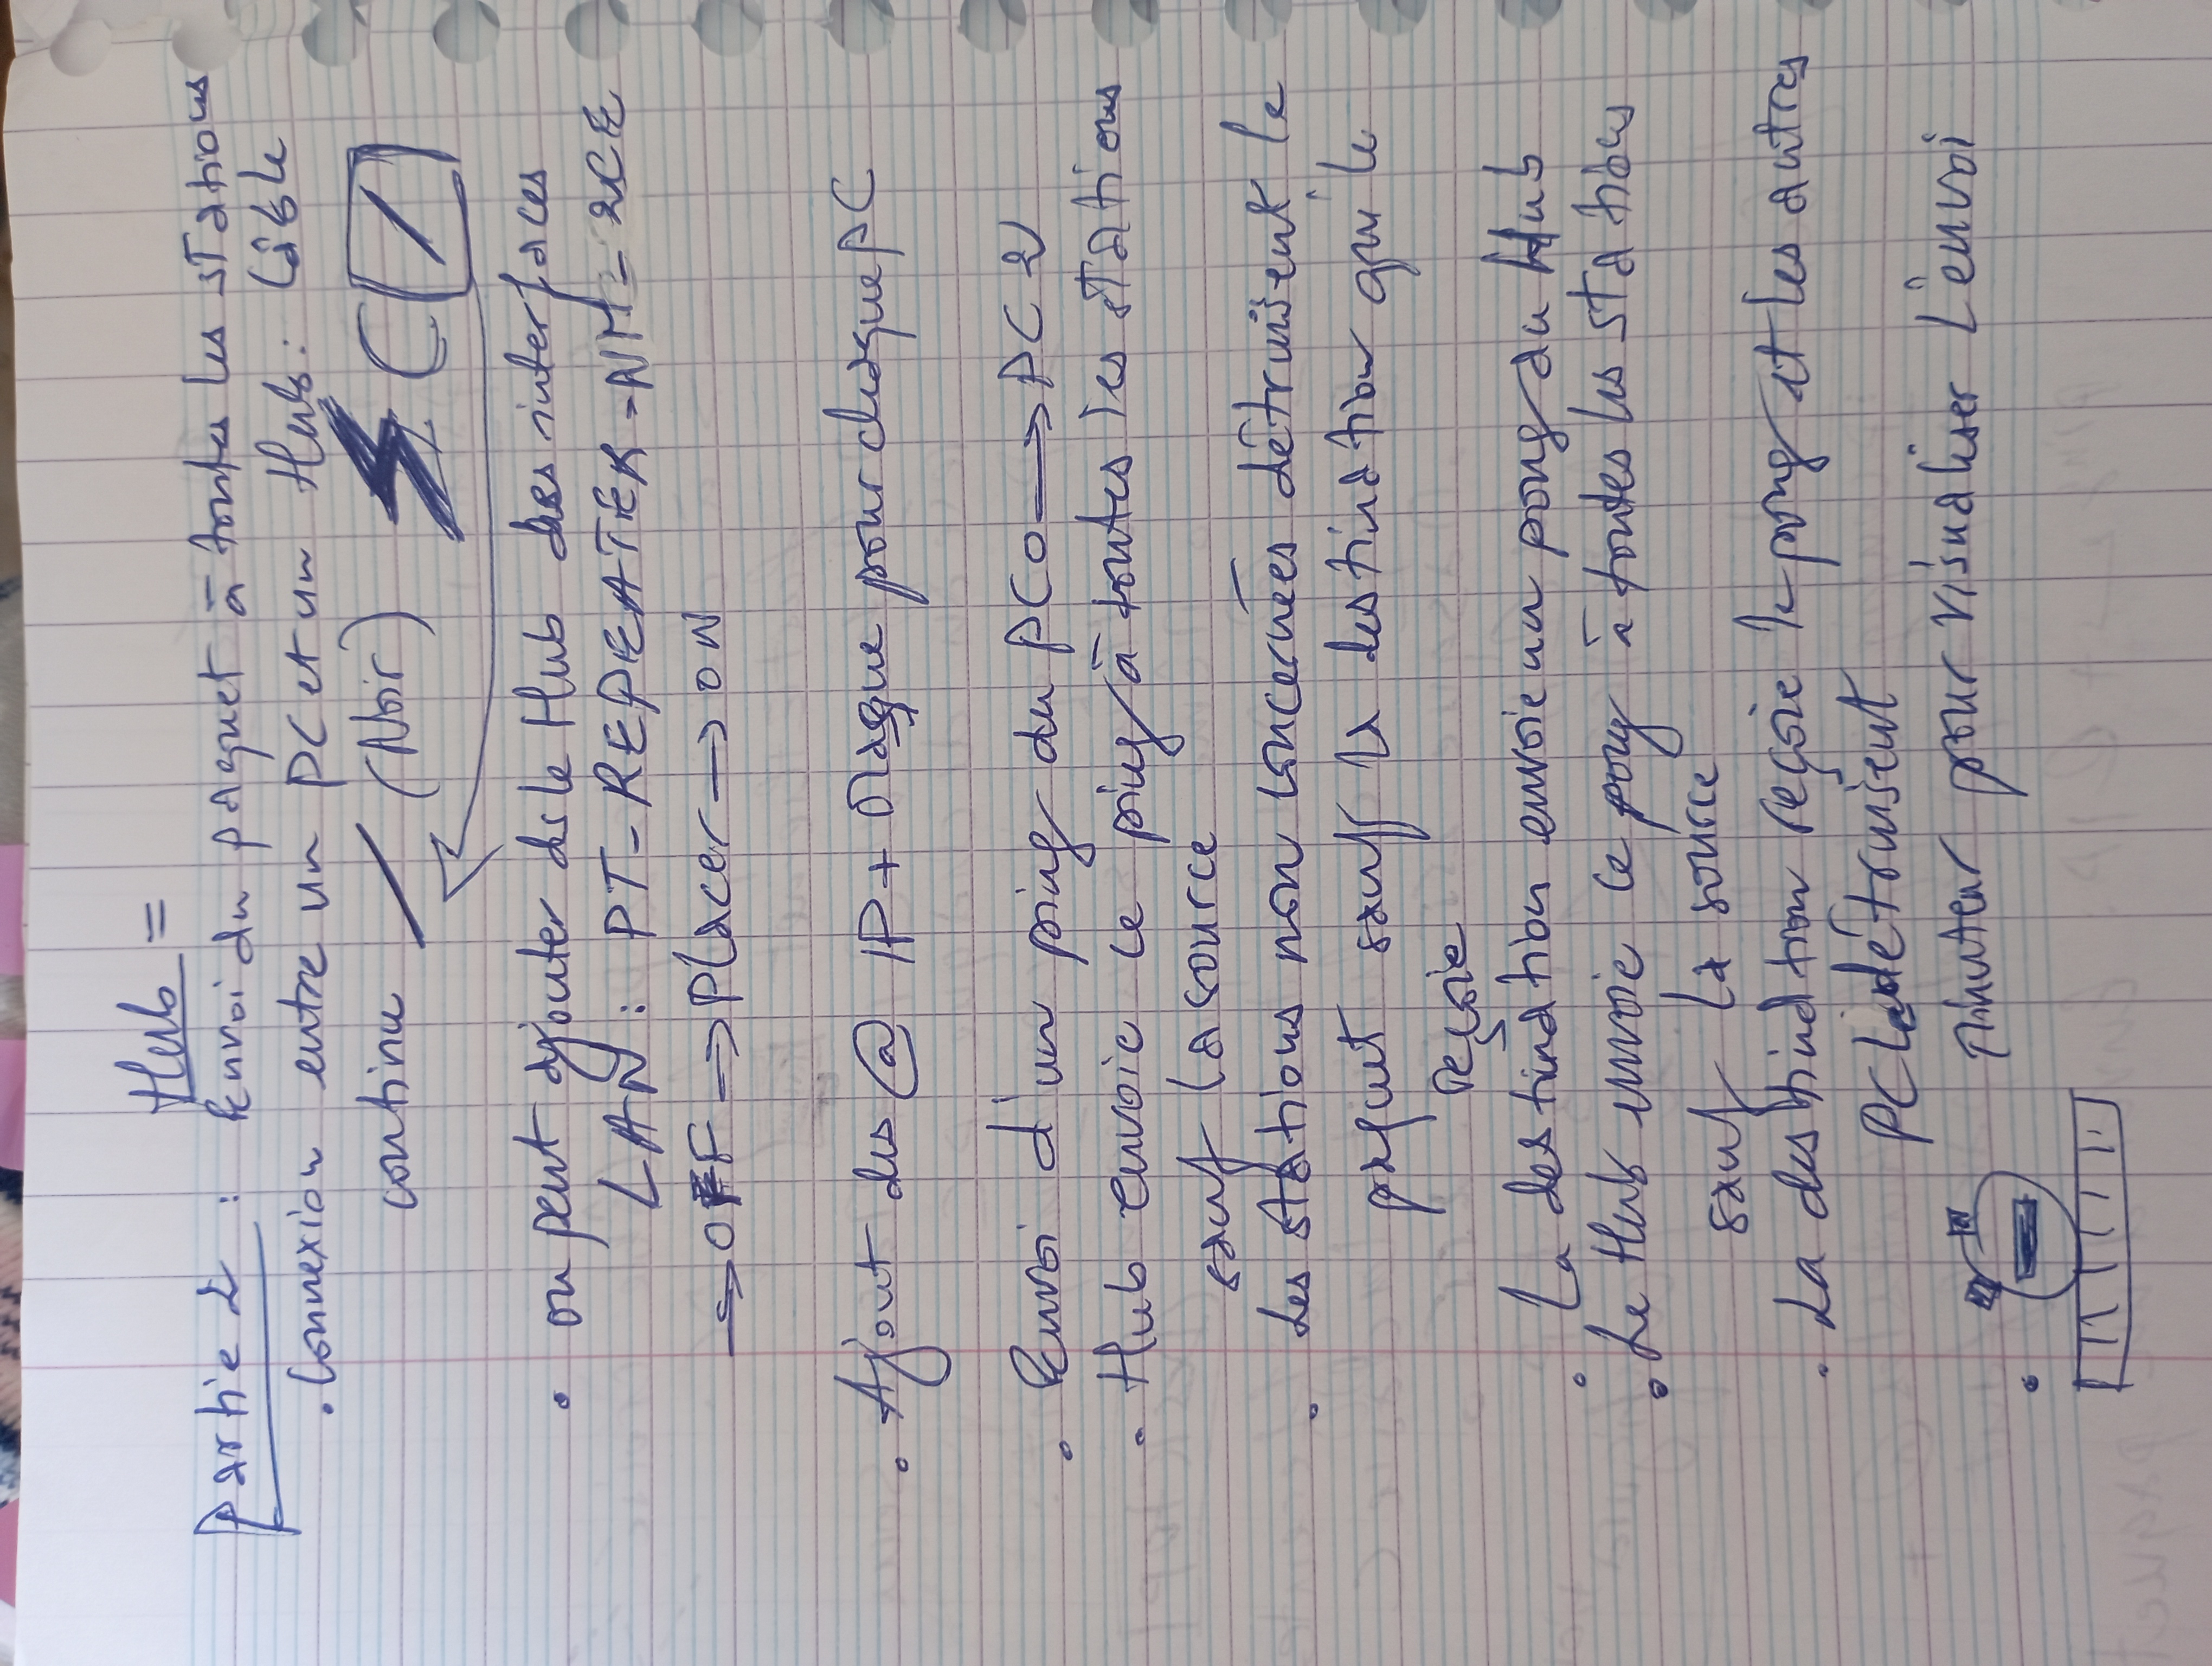 Hub =
Partie 2 : Envoi du paquet à toutes les stations
. Connexion entre un PC et un Hub : Câble
continu (Noir)
. on peut ajouter ds le Hub des interfaces
LAN : PT-REPEATER-NM-2CE
→ OFF → Placer → ON
. Ajout des @ IP + Masque pour chaque PC
. Envoi d'un ping du PC0 → PC2
. Hub envoie ce ping à toutes les stations
sauf la source
. Les stations non concernées détruisent le
paquet sauf la destination qui le
reçoie
. La destination envoie un pong au Hub
. Le Hub envoie ce pong à toutes les stations
sauf la source
. La destination reçoie le pong et les autres
PC le détruisent
. minuteur pour visualiser l'envoi